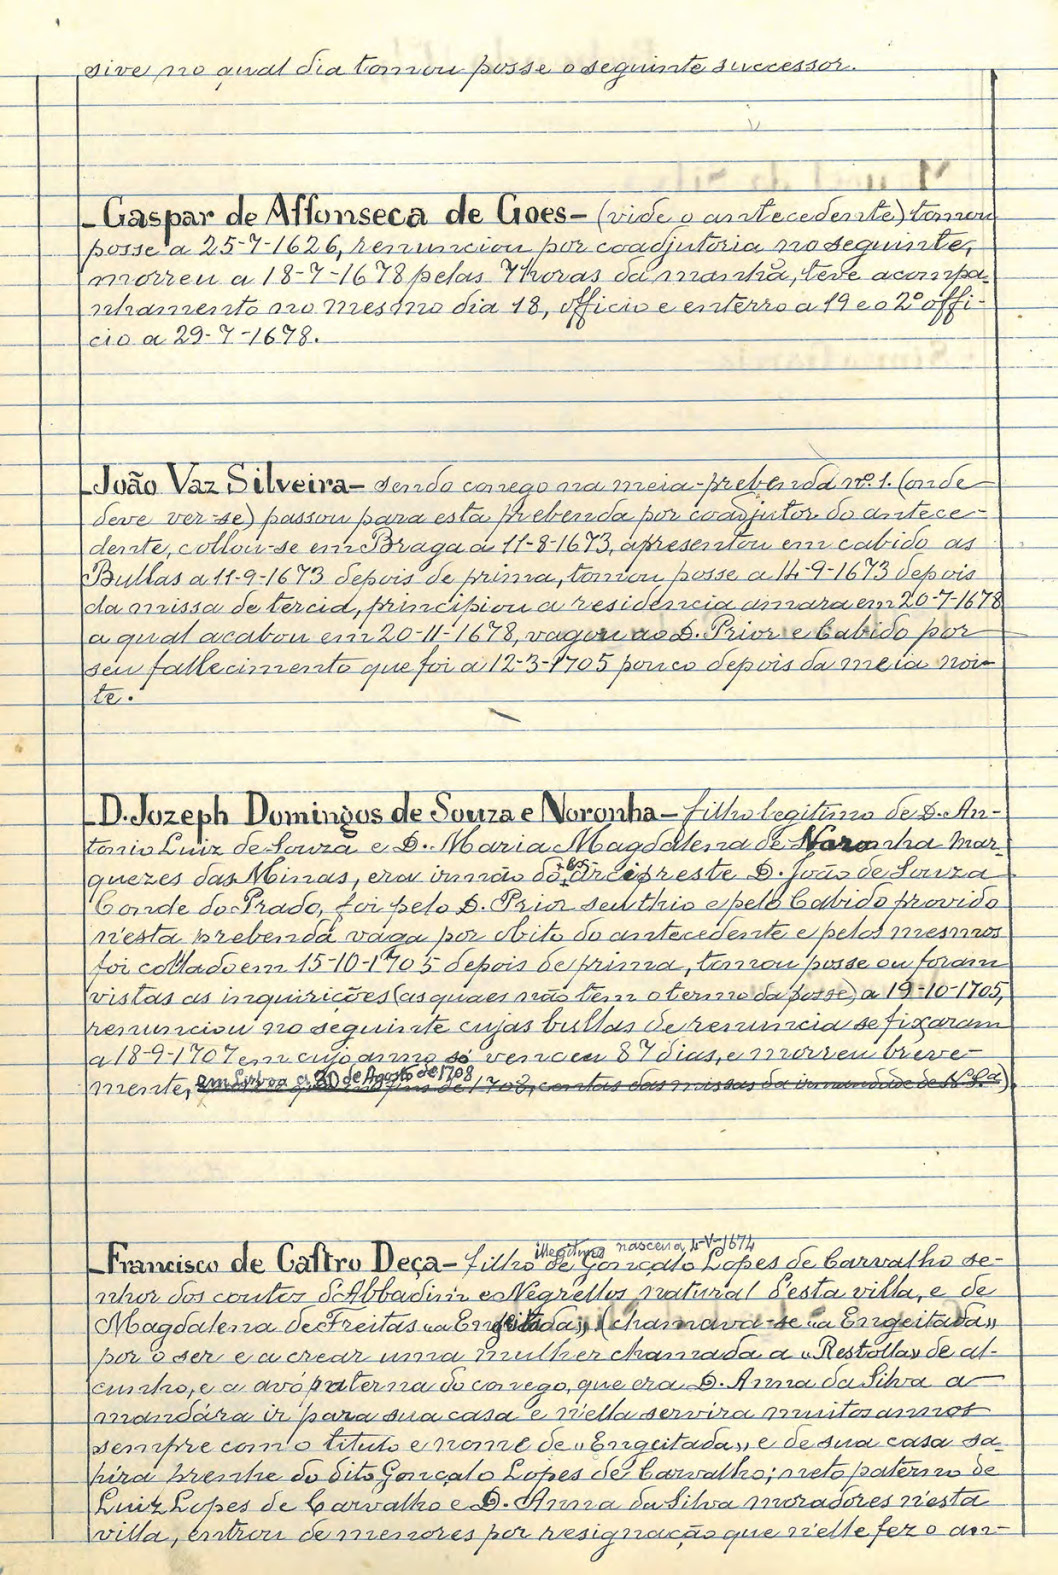 sive, no qual dia tomou posse o seguinte successor.
- Gaspar de Affonseca de Goes - (vide o antecedente) tomou
posse a 25-7-1626, renunciou por coadjutoria no seguinte,
morreu a 18-7-1678 pelas 7 horas da manhã, teve acompa-
nhamento no mesmo dia 18, officio e enterro a 19 e o 2º offi-
cio a 29-7-1678.
- João Vaz Silveira - sendo conego na meia-prebenda nº 1. (onde
deve ver-se) passou para esta prebenda por coadjutor do antece-
dente, collou-se em Braga a 11-8-1673, apresentou em cabido as
Bullas a 11-9-1673 depois de prima, tomou posse a 14-9-1673 depois
da missa de tercia, principiou a residencia amara em 20-7-1678
a qual acabou em 20-11-1678, vagou ao D. Prior e Cabido por
seu fallecimento que foi a 12-3-1705 pouco depois da meia noi-
te.
- D. Jozeph Domingos de Souza e Noronha - filho legitimo de D. An-
tonio Luiz de Souza e D. Maria Magdalena de Noronha Mar-
quezes das Minas, era irmão do arcipreste D. João de Souza
Conde do Prado, foi pelo D. Prior seu thio e pelo Cabido provido
n'esta prebenda vaga por obito do antecedente e pelos mesmos
foi collado em 15-10-1705 depois de prima, tomou posse ou foram
vistas as inquirições (as quaes não tem o termo da posse) a 19-10-1705,
renunciou no seguinte cujas bullas de renuncia se fixaram
a 18-9-1707 em cujo anno só venceu 87 dias, e morreu breve-
em Lisboa a 30 de Agosto de 1708
mente, de 1708, contas das missas da irmandade de N. Sª)
illegitimo nasceu a 15-V-1674
- Francisco de Castro Deça - filho de Gonçalo Lopes de Carvalho se-
nhor dos coutos d'Abbadim e Negrellos natural d'esta villa, e de
Magdalena de Freitas «a Engeitada» (chamava-se «a Engeitada»
por o ser e a crear uma mulher chamada a «Restolla» de al-
cunho, e a avó paterna do conego, que era D. Anna da Silva a
mandára ir para sua casa e n'ella servira muitos annos
sempre com o titulo e nome de «Engeitada», e de sua casa sa-
hira prenhe do dito Gonçalo Lopes de Carvalho; neto paterno de
Luiz Lopes de Carvalho e D. Anna da Silva moradores n'esta
villa, entrou de menores por resignação que n'elle fez o an-